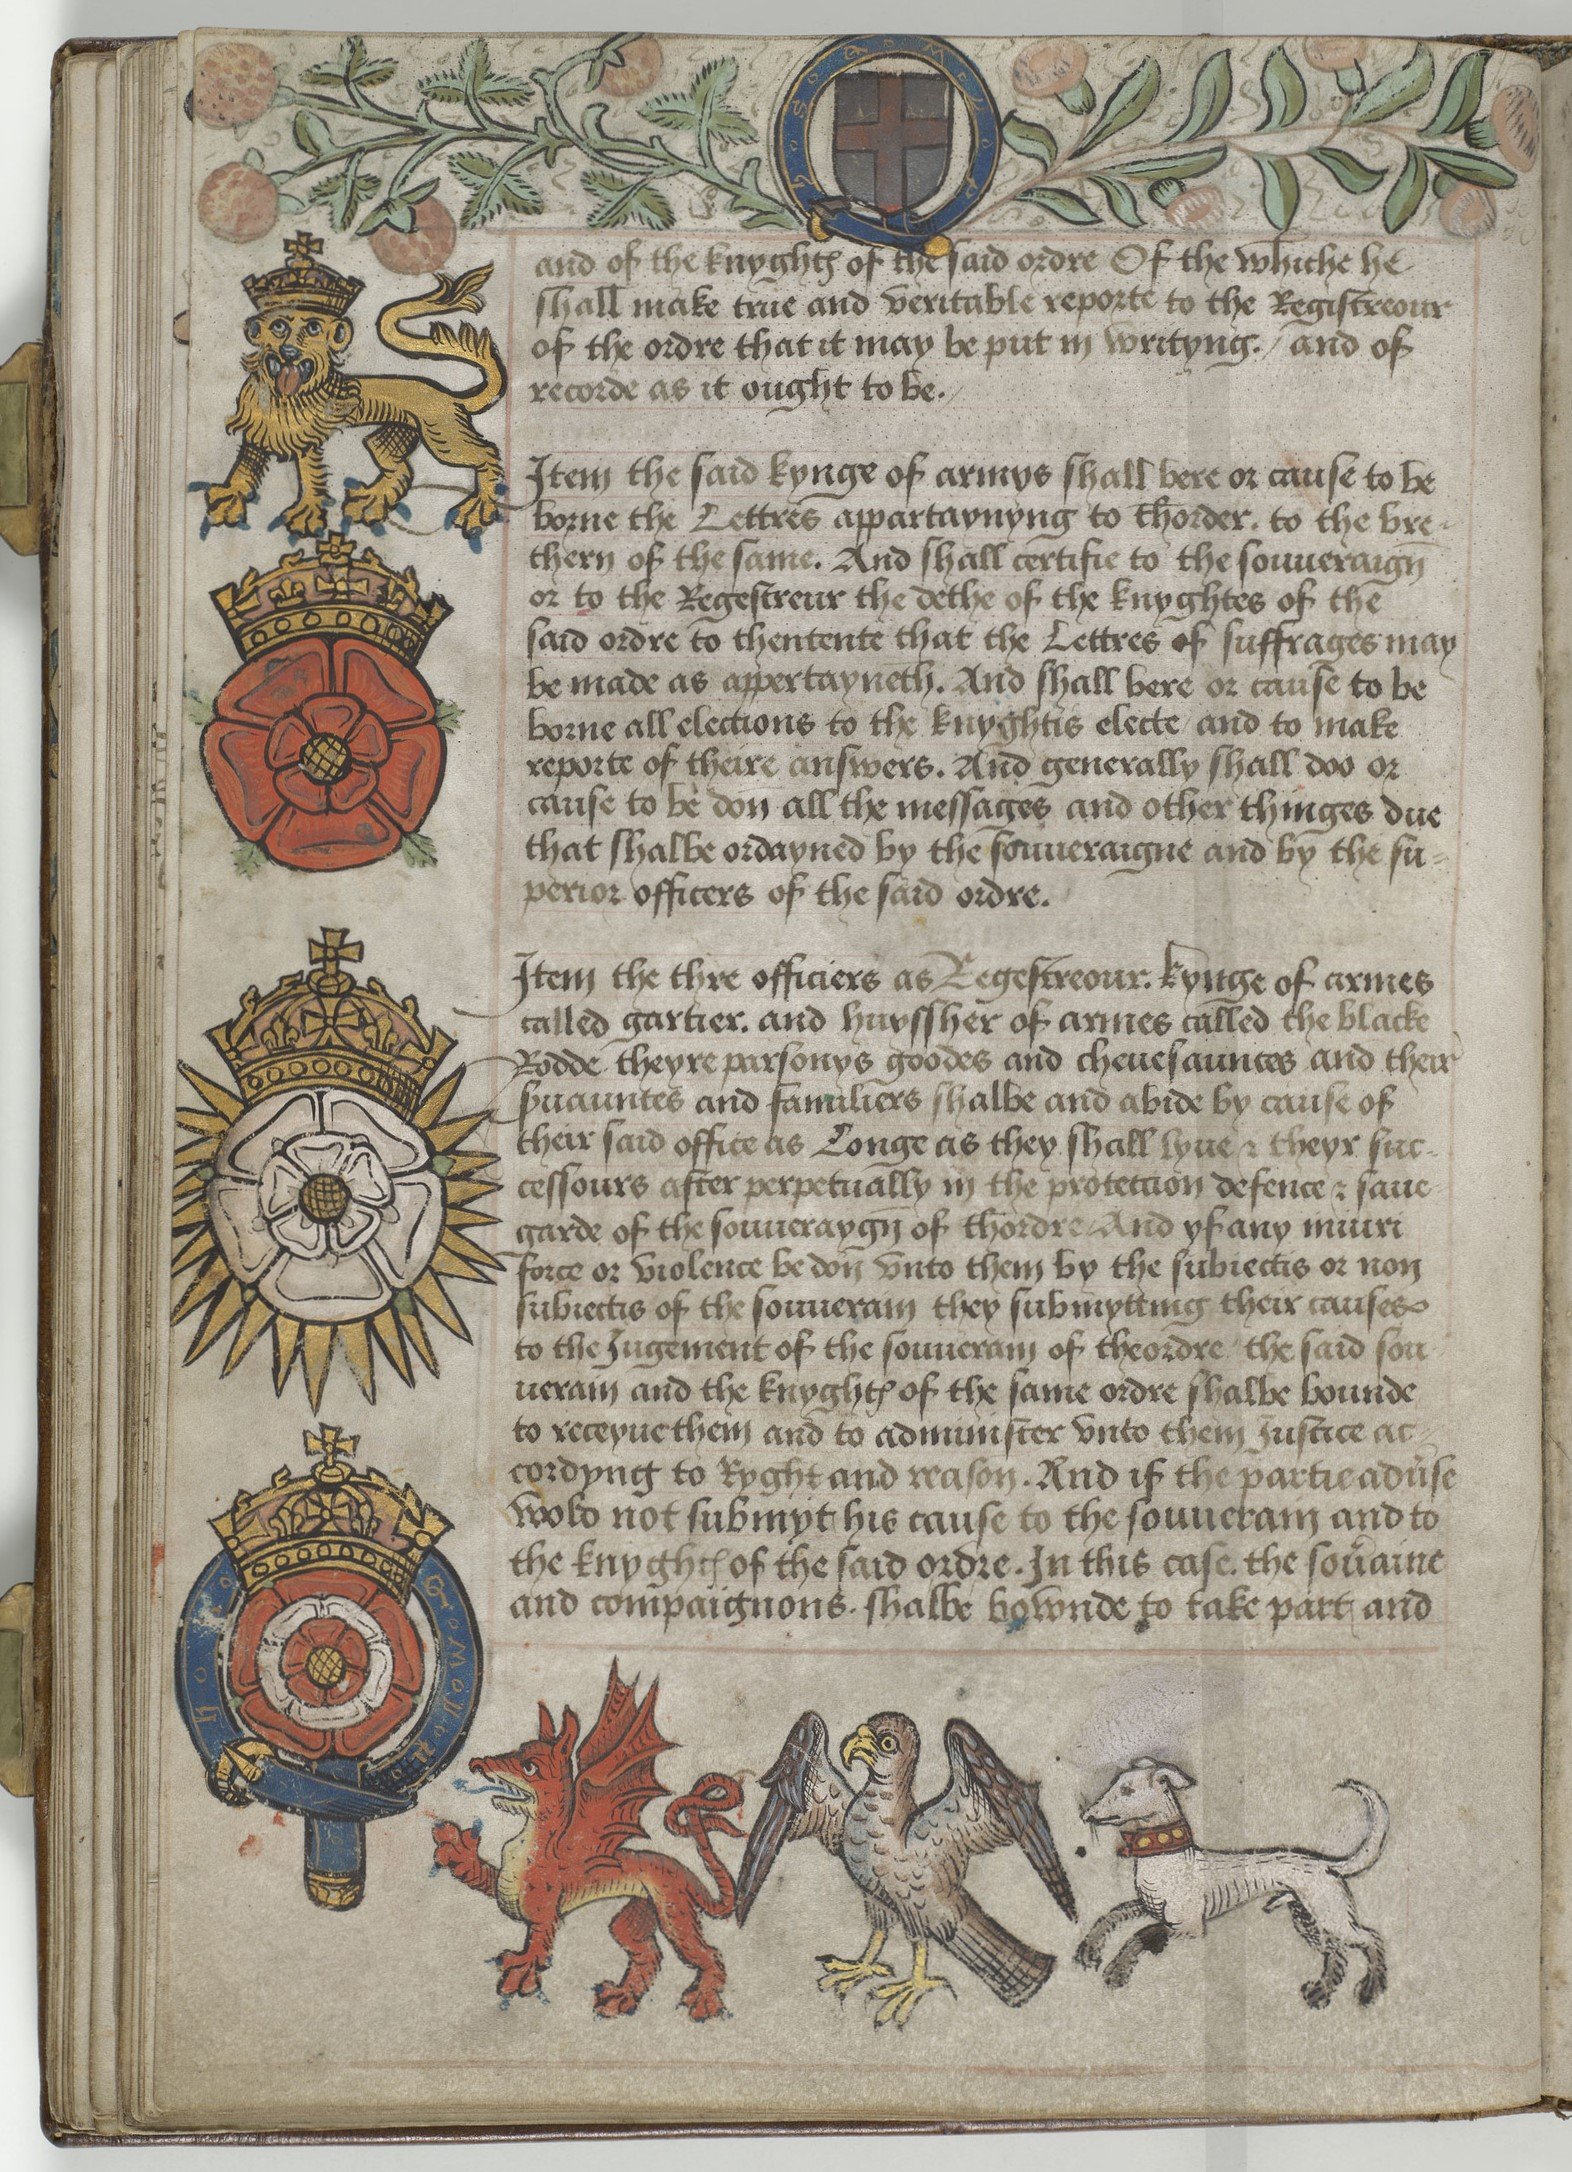 and of the knyght of the said ordre Of the whiche he
shall make true and veritable reporte to the Registreour
of the ordre that it may be put in writyng. / and of
recorde as it ought to be. /
Item the said kynge of armys shall bere or cause to be
borne the Lettres appartaynyng to thorder. to the bre-
thern of the same. And shall certifie to the souueraign
or to the Regestreur the dethe of the knyghtes of the
said ordre to thentente that the Lettres of suffrages may
be made as appertayneth. And shall bere or cause to be
borne all elections to the knyghtis electe and to make
reporte of theire answers. And generally shall doo or
cause to be don all the messages and other thinges due
that shalbe ordayned by the souueraigne and by the su=
perior officers of the said ordre.
Item the thre officiers as Regestreour. kynge of armes
called gartier. and huyssher of armes called the blacke
Rodde theyre parsonys goodes and cheuesaunces and their
suauntes and familiers shalbe and abide by cause of
their said office as Longe as they shall lyue & theyr suc-
cessours after perpetually in the proteccion defence & saue
garde of the souueraygn of thordre And yf any iniuri
force or violence be don vnto them by the subiectis or non
subiectis of the souuerain they submytting their causes
to the Jugement of the souuerain of theordre the said sou
uerain and the knyght of the same ordre shalbe bounde
to receyue them and to administer vnto them Justice ac-
cordyng to Ryght and reason. And if the partie aduse
wold not submyt his cause to the souuerain and to
the knyght of the said ordre. In this case. the souaine
and compaignons. shalbe bownde to take part and